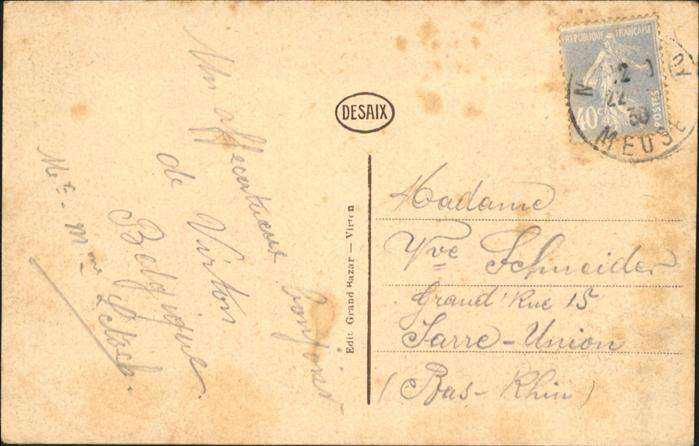 Un affectueux bonjour
de Virton
Belgique.
Mr - Mme
DESAIX
Edit. Grand Bazar — Virton
REPUBLIQUE FRANÇAISE
40c
POSTES
22
30
MEUSE
Madame
Yve Schneider
Grand'Rue 15
Sarre-Union
(Bas-Rhin)